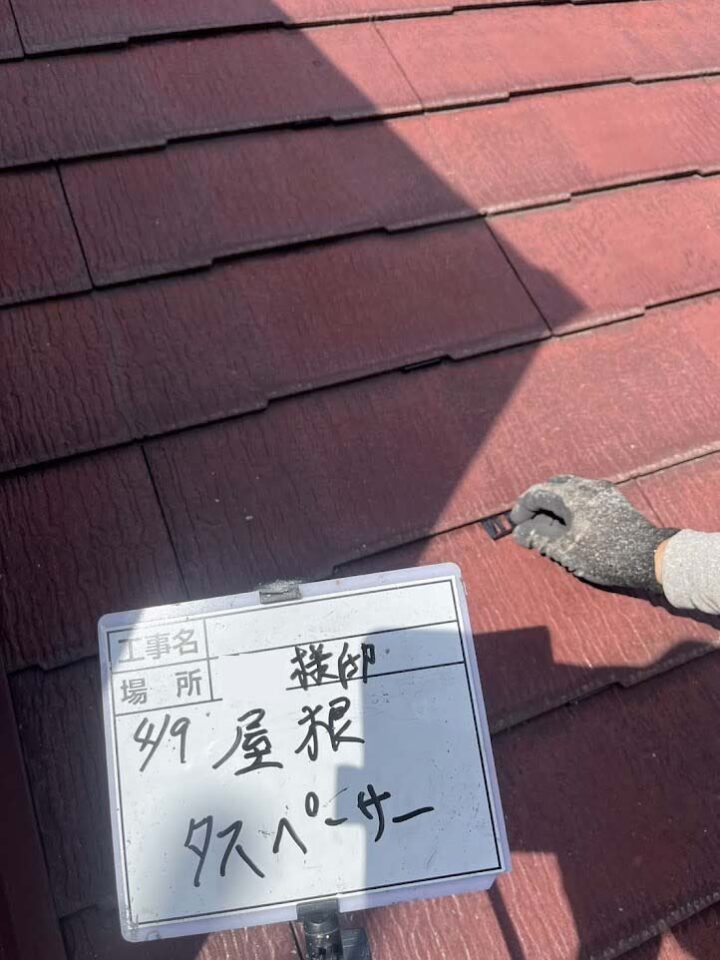 工事名
場所 様邸
4/9 屋根
タスペーサー